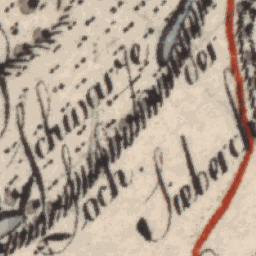 Schwarze
Loch
der
Sieberch